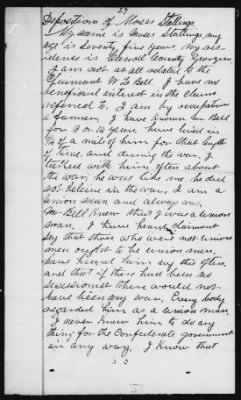 27
Deposition of Moses Stallings
My name is Moses Stallings, my
age is Seventy five years, my res-
idence is County Georgia
I am not at all related to the
Claimant Bell. I have no
beneficial interest in the claim
referred to. I am by occupation
a farmer, I have known Mr Bell
for years, have lived in
of a mile of him for that length
of time, and during the war, I
talked with him often about
the war, he was like me, he did
not beleive in the war, I am a
union man and always was,
Mr Bell knew that I was a union
man. I have heard claimant
say that those who were not union
men ought to be union men,
have heard him say this often,
and that if there had been no
secessionist there would not
have been any war, Every body
regarded him as a union man
I never knew him to do any
thing for the Confederate government
in any way. I know that